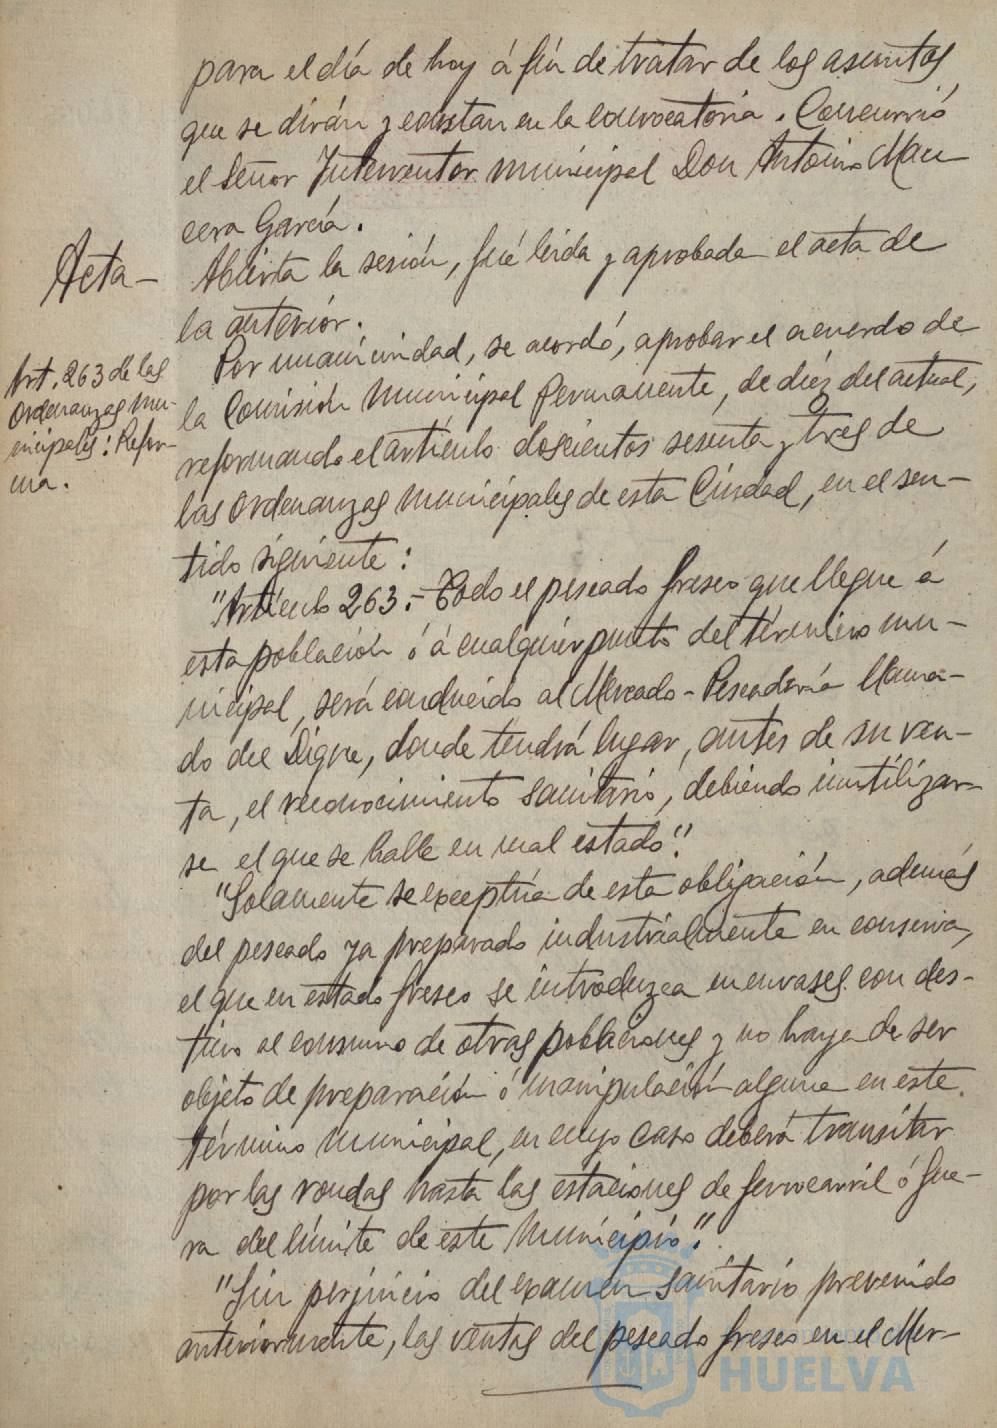 para el día de hoy á fin de tratar de los asuntos
que se dirán y constan en la convocatoria. Concurrió
el Señor Interventor municipal Don Antonio Man-
cera García.
Acta-
Abierta la sesión, fué leida y aprobada el acta de
la anterior.
Art. 263 de las
Ordenanzas Mu-
nicipales: Refor-
ma.
Por unanimidad, se acordó, aprobar el acuerdo de
la Comisión Municipal Permanente, de diez del actual,
reformando el artículo doscientos sesenta y tres de
las Ordenanzas Municipales de esta Ciudad, en el sen-
tido siguiente:
"Artículo 263.- Todo el pescado fresco que llegue á
esta población ó á cualquier punto del término mu-
nicipal, será conducido al Mercado-Pescadería llama-
do del Dique, donde tendrá lugar, antes de su ven-
ta, el reconocimiento sanitario, debiendo inutilizar-
se el que se halle en mal estado."
"Solamente se exceptúa de esta obligación, además
del pescado ya preparado industrialmente en conserva,
el que en estado fresco se introduzca en envases con des-
tino al consumo de otras poblaciones y no haya de ser
objeto de preparación ó manipulación alguna en este
término municipal, en cuyo caso deberá transitar
por las rondas hasta las estaciones de ferrocarril ó fue-
ra del límite de este Municipio."
"Sin perjuicio del examen sanitario prevenido
anteriormente, las ventas del pescado fresco en el Mer-
HUELVA